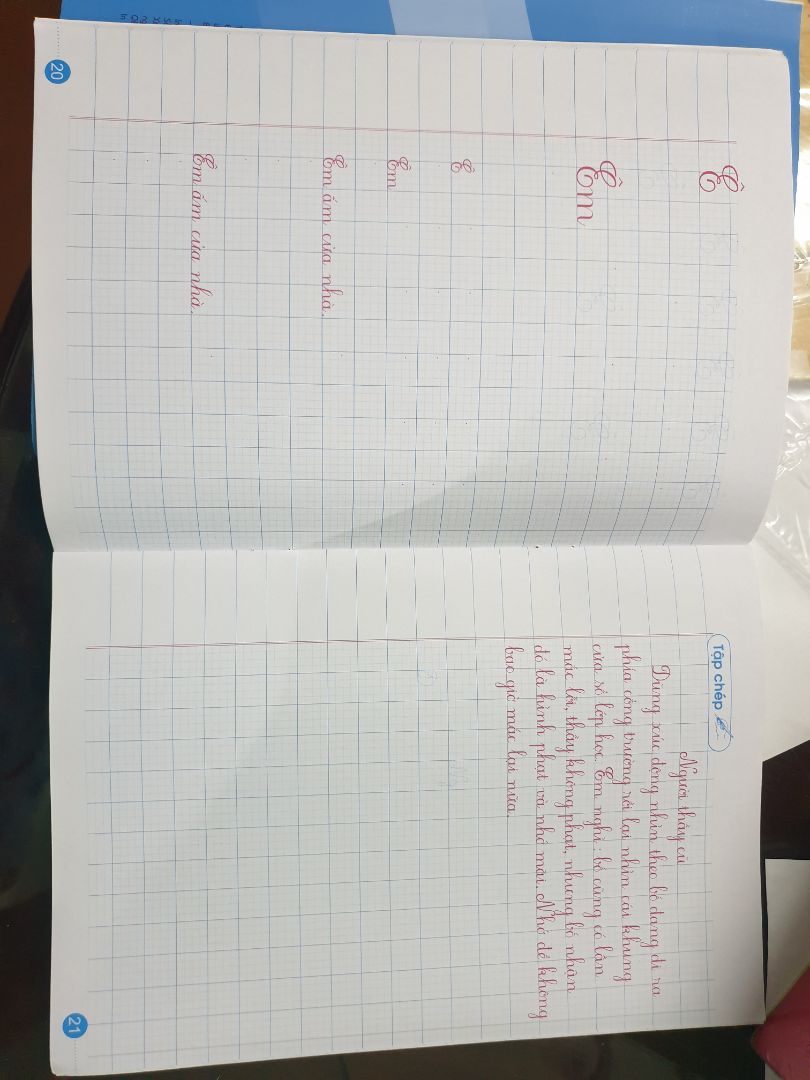 Ê
Êm
Ê
Êm
Êm ấm cửa nhà.
Êm ấm cửa nhà.
20
Tập chép
Người thầy cũ
Dũng xúc động nhìn theo bố đang đi ra
phía cổng trường rồi lại nhìn cái khung
cửa sổ lớp học. Em nghĩ : bố cũng có lần
mắc lỗi, thầy không phạt, nhưng bố nhận
đó là hình phạt và nhớ mãi. Nhớ để không
bao giờ mắc lại nữa.
21